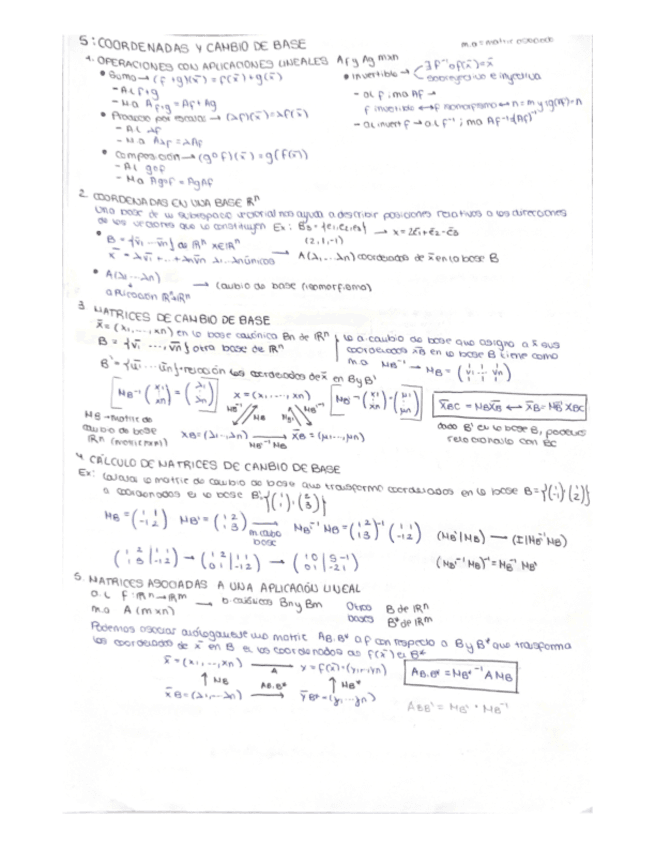 5: COORDENADAS Y CAMBIO DE BASE
m.a = matriz asociada
1. OPERACIONES CON APLICACIONES LINEALES Af y Ag mxn
• Suma → (f+g)(x̄) = f(x̄) + g(x̄)
- AL f+g
- M.a Af+g = Af + Ag
• Producto por escalar → (λf)(x̄) = λf(x̄)
- AL λf
- M.a Aλf = λAf
• Composición → (g∘f)(x̄) = g(f(x̄))
- AL g∘f
- M.a Ag∘f = AgAf
• Invertible → ∃ f⁻¹∘f(x̄) = x̄
sobreyectiva e inyectiva
- al f ; m.a Af →
f invertible ↔ f monomorfismo ↔ n = m y rg(Af) = n
- al invert f → al f⁻¹ ; m.a Af⁻¹ = (Af)⁻¹
2. COORDENADAS EN UNA BASE ℝⁿ
Una base de un subespacio vectorial nos ayuda a describir posiciones relativas a las direcciones
de los vectores que lo constituyen Ex: B3 = {e1, e2, e3} → x = 2ē1 + ē2 - ē3
(2, 1, -1)
• B = {v̄1 ... v̄n} de ℝⁿ x ∈ ℝⁿ
x̄ = λ1v̄1 + ... + λnv̄n λ1...λn únicos → A(λ1...λn) coordenadas de x̄ en la base B
• A(λ1...λn)
aplicación ℝⁿ→ℝⁿ → cambio de base (isomorfismo)
3. MATRICES DE CAMBIO DE BASE
x̄ = (x1, ..., xn) en la base canónica Bn de ℝⁿ
B = {v̄1 ..., v̄n} otra base de ℝⁿ
la a. cambio de base que asigna a x̄ sus
coordenadas x̄B en la base B tiene como
m.a MB⁻¹ → MB = (v1 v1 vn)
B' = {ū1 ... ūn} relación las coordenadas de x̄ en B y B'
[MB⁻¹ (x1 xn) = (λ1 λn)] x = (x1, ..., xn) [MB'⁻¹ (x1 xn) = (μ1 μn)]
x̄BC = MB x̄B ↔ x̄B = MB⁻¹ x̄BC
MB → matriz de
cambio de base
ℝⁿ
MB⁻¹ MB MB' MB'⁻¹
xB = (λ1..., λn) → x̄B' = (μ1, ..., μn)
MB'⁻¹ MB
dado B' en la base B, podemos
relacionarlo con BC
4. CÁLCULO DE MATRICES DE CAMBIO DE BASE
Ex: calcular la matriz de cambio de base que transforma coordenadas en la base B = {(1 -1) (1 2)}
a coordenadas en la base B' {(1 1) (2 3)}
MB = (1 1 / -1 2) MB' = (1 2 / 1 3) → MB'⁻¹ MB = (1 2 / 1 3)⁻¹ (1 1 / -1 2) (MB' | MB) → (I | MB'⁻¹ MB)
m. cambio
base
(1 2 | 1 1 / 1 3 | -1 2) → (1 2 | 1 1 / 0 1 | -2 1) → (1 0 | 5 -1 / 0 1 | -2 1) (MB'⁻¹ MB)⁻¹ = MB⁻¹ MB'
5. MATRICES ASOCIADAS A UNA APLICACIÓN LINEAL
a.L F: ℝⁿ → ℝᵐ
m.a A (mxn) → b. canónicas Bn y Bm
Otras bases
B de ℝⁿ
B* de ℝᵐ
Podemos asociar análogamente una matriz AB,B* a f con respecto a B y B* que transforma
las coordenadas de x̄ en B en las coordenadas de f(x̄) en B*
x̄ = (x1, ..., xn) → y = f(x̄) = (y1...yn)
A
↑ MB AB,B* ↑ MB*
x̄B = (λ1 ... λn) → ȳB* = (y1 ... yn)
AB,B* = MB*⁻¹ A MB
ABB' = MB' · MB⁻¹